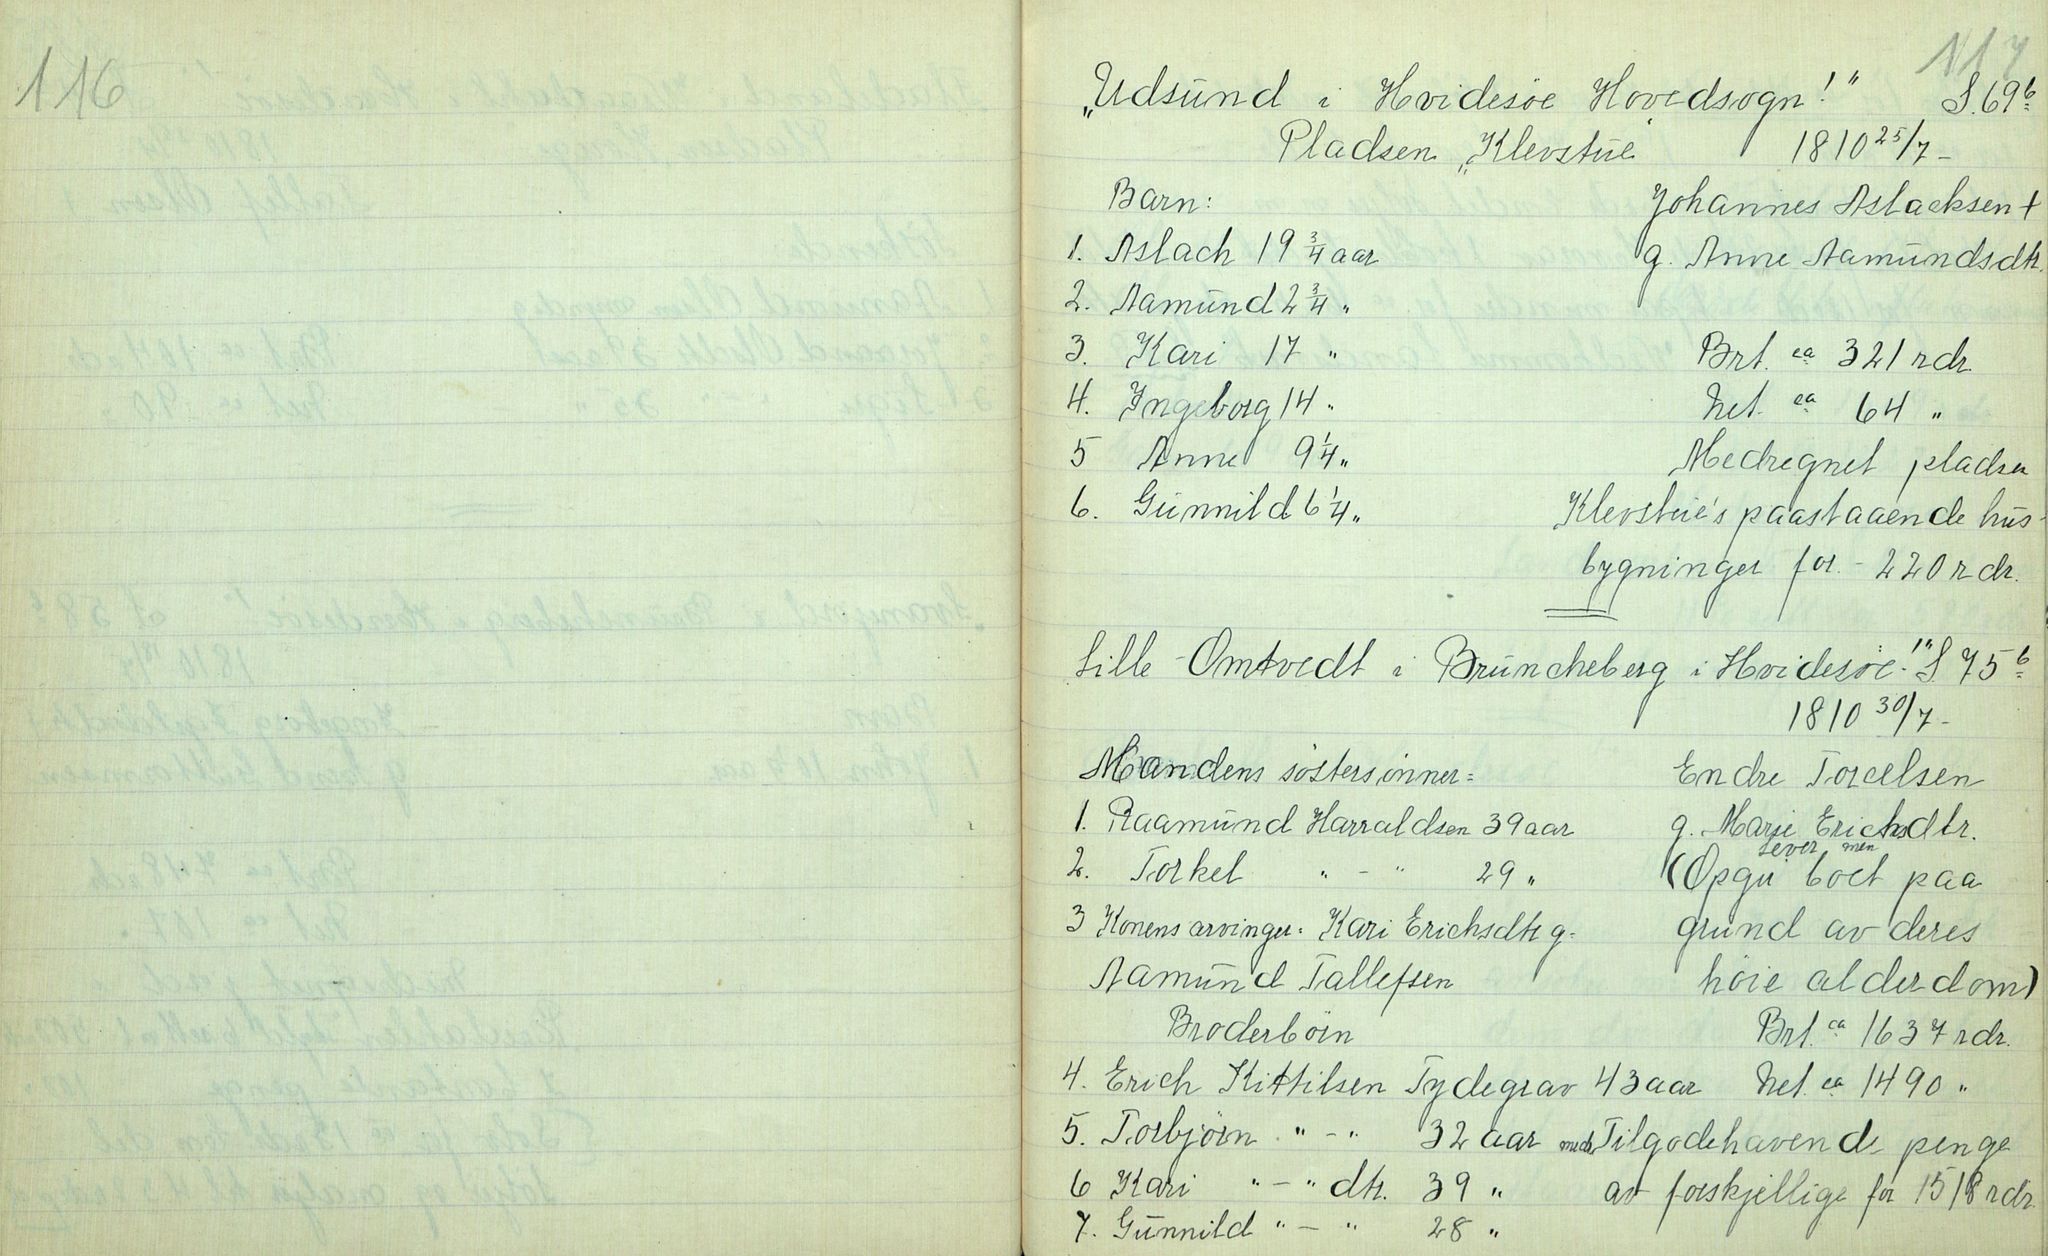 116
117
„Udsund i Hvidesøe Hovedsogn!" S. 69b
Pladsen „Klevstue" 1810 25/7-
Barn: Johannes Aslacksen †
1. Aslach 19 3/4 aar g. Anne Aamundsdtr.
2. Aamund 2 3/4 "
3. Kari 17 " Brt. ca 321 rdr.
4. Ingeborg 14 " Net. ca 64 "
5 Anne 9 1/4 " Medregnet pladsen
6. Gunnild 6 1/4 " Klevstue's paastaaende hus-
bygninger for - 220 rdr.
Lille-Omtvedt i Bruncheberg i Hvidesøe!" S. 75b
1810 30/7-
Mandens søstersønner= Endre Torcelsen
1. Raamund Harraldsen 39 aar g. Marie Erichsdtr.
lever men
2. Torkel " - " 29 " (Opgir boet paa
3 Konens arvinger: Kari Erichsdtr g. grund av deres
Aamund Tallefsen høie alderdom)
Broderbørn Brt. ca 1637 rdr.
4. Erich Kittilsen Tydegrav 43 aar Net ca 1490 "
5. Torbjørn " - " 32 aar Tilgodehavende penge
6 Kari " - " dtr. 39 " av forskjellige for 1518 rdr.
7. Gunnild " - " 28 "